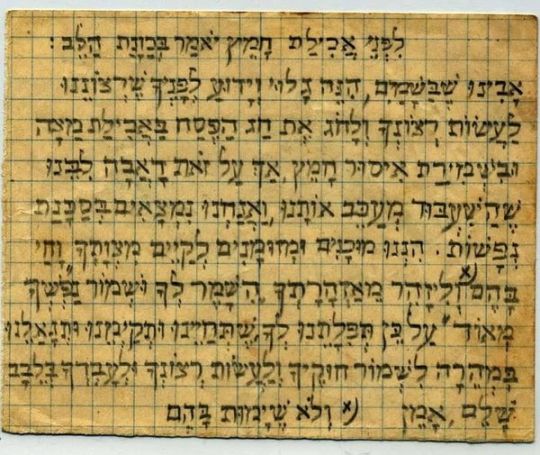 לִפְנֵי אֲכִילַת חָמֵץ יֹאמַר בְּכַוָּנַת הַלֵּב :
אָבִינוּ שֶׁבַּשָּׁמַיִם, הִנֵּה גָלוּי וְיָדוּעַ לְפָנֶיךָ שֶׁרְצוֹנֵנוּ
לַעֲשׂוֹת רְצוֹנְךָ וְלָחוֹג אֶת חַג הַפֶּסַח בַּאֲכִילַת מַצָּה
וּבִשְׁמִירַת אִיסוּר חָמֵץ, אַךְ עַל זֹאת דָאֲבָה לִבֵּנוּ
שֶׁהַשִּׁעְבּוּד מְעַכֵּב אוֹתָנוּ, וַאֲנַחְנוּ נִמְצָאִים בְּסַכָּנַת
נְפָשׁוֹת. הִנְנוּ מוּכָנִים וּמְזוּמָּנִים לְקַיֵּים מִצְוָתֶךָ „וָחַי
בָּהֶם" x) וְלִיזָהֵר מֵאַזְהָרָתֶךָ „הִשָּׁמֶר לְךָ וּשְׁמוֹר נַפְשְׁךָ
מְאוֹד" עַל כֵּן תְּפִלָּתֵנוּ לְךָ שֶׁתְּחַיֵּינוּ וּתְקַיְּמֵנוּ וְתִגְאָלֵנוּ
בִּמְהֵרָה לִשְׁמוֹר חוּקֶּיךָ וְלַעֲשׂוֹת רְצוֹנֶךָ וּלְעָבְדְּךָ בְּלֵבָב
שָׁלֵם, אָמֵן x) וְלֹא שֶׁיָּמוּת בָּהֶם